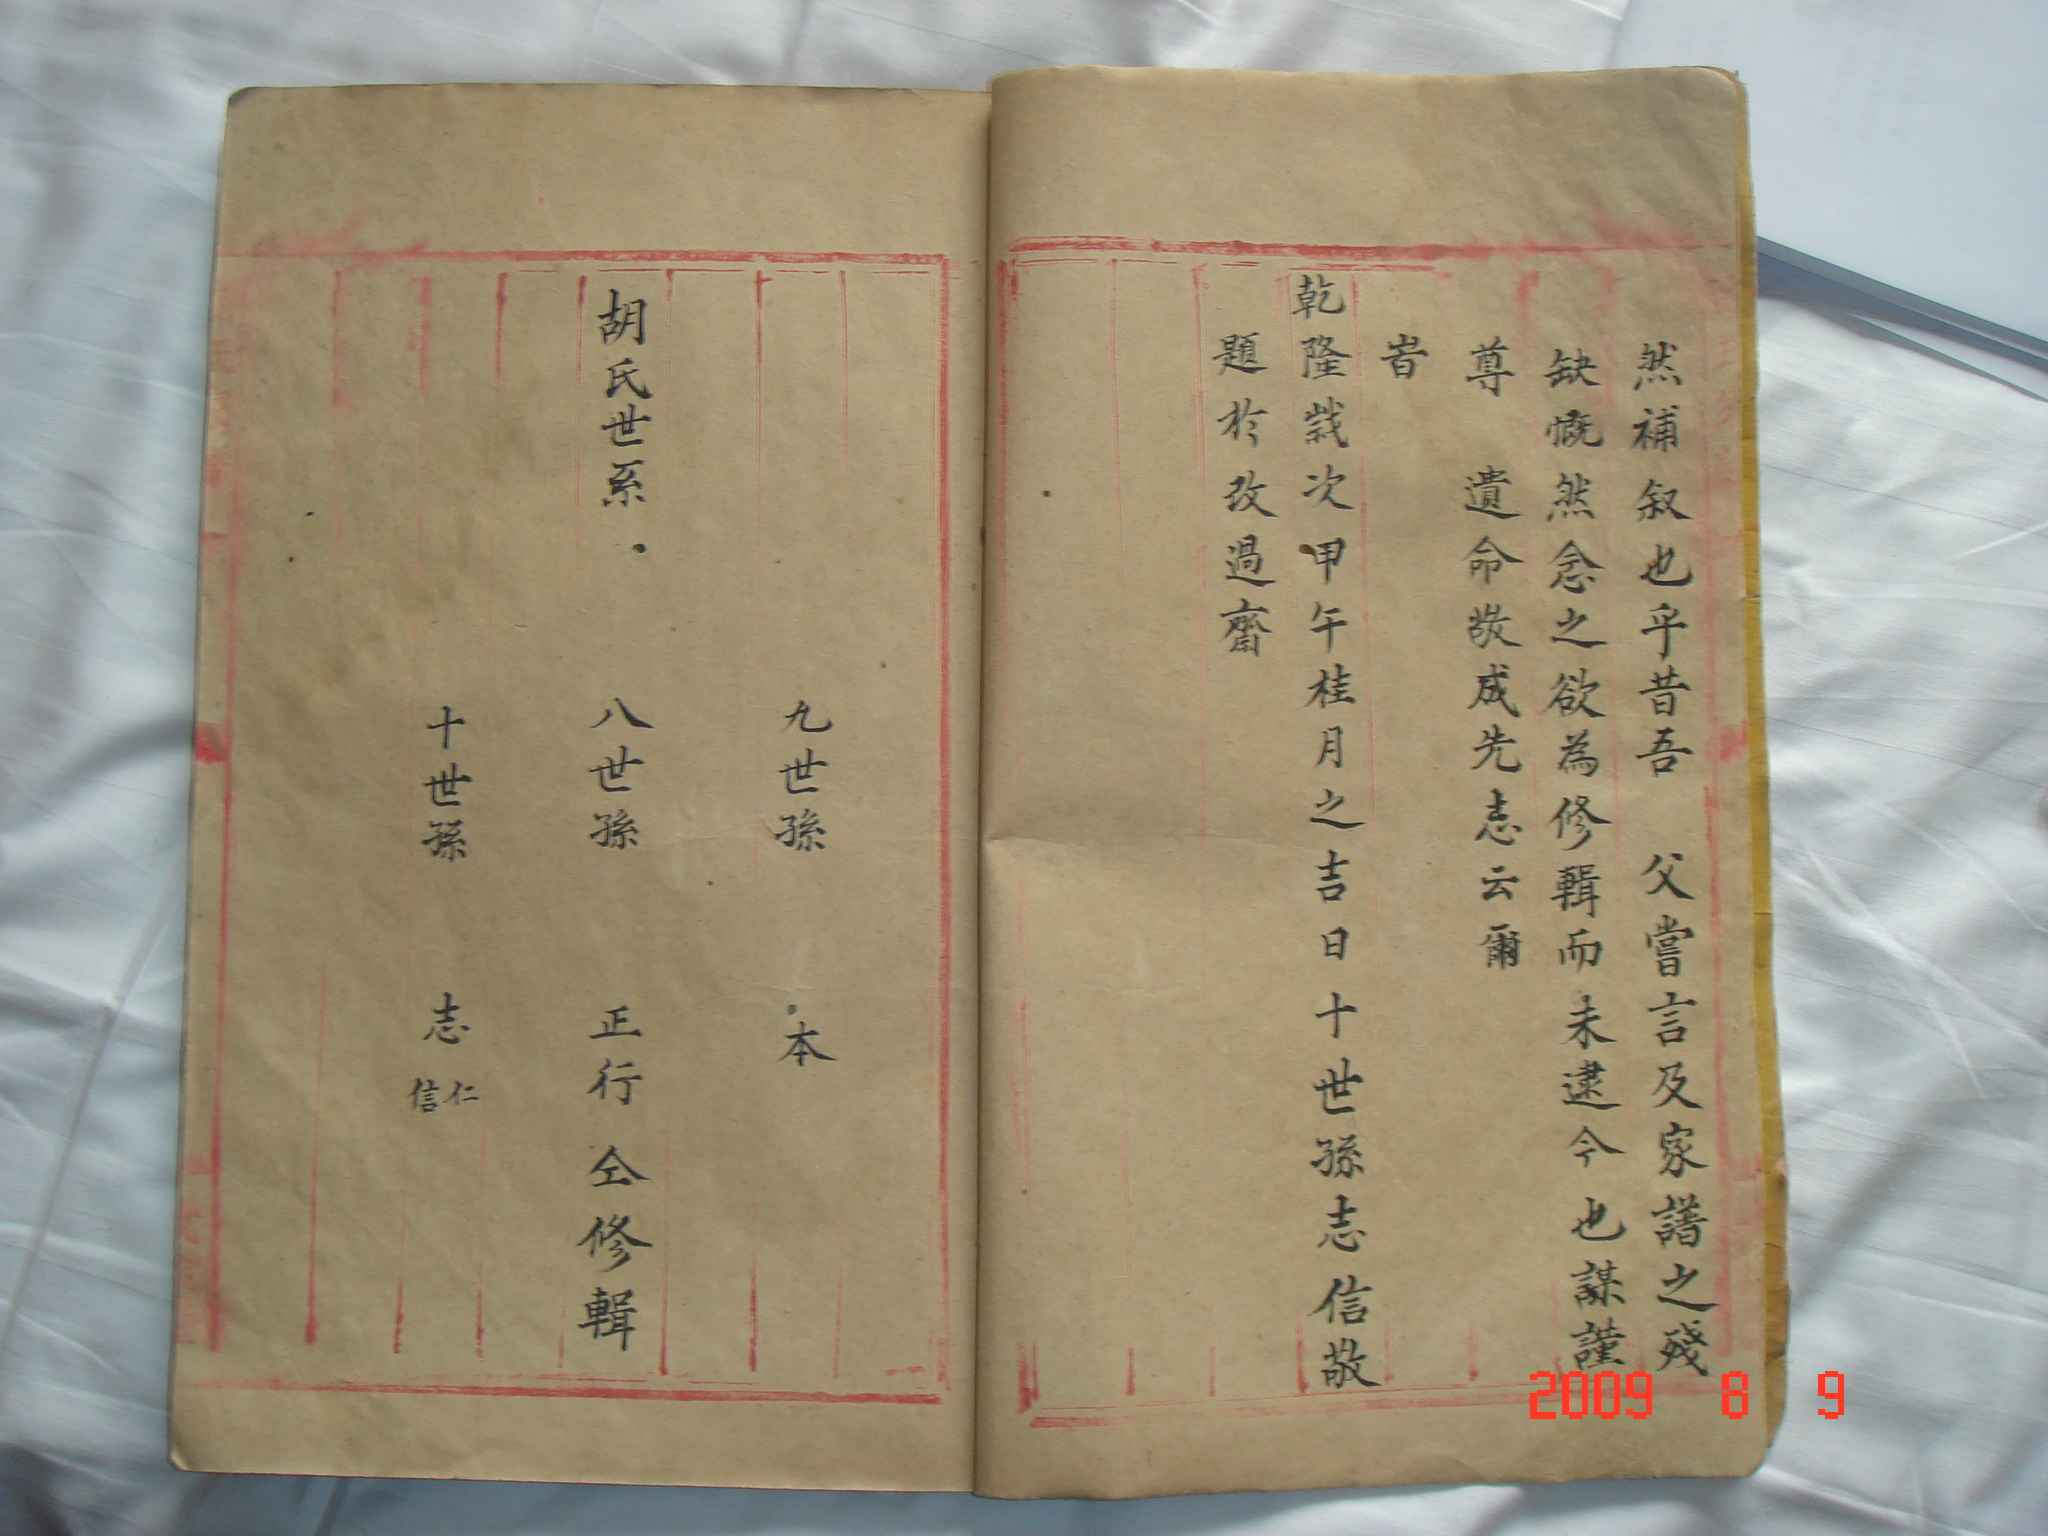 然補叙也乎昔吾　父嘗言及家譜之殘
缺慨然念之欲為修輯而未逮今也謀謹
尊　遺命敬成先志云爾
旹
乾隆歲次甲午桂月之吉日十世孫志信敬
題於改過齋
九世孫　本
胡氏世系　八世孫　正行仝修輯
十世孫　志仁信
2009 8 9